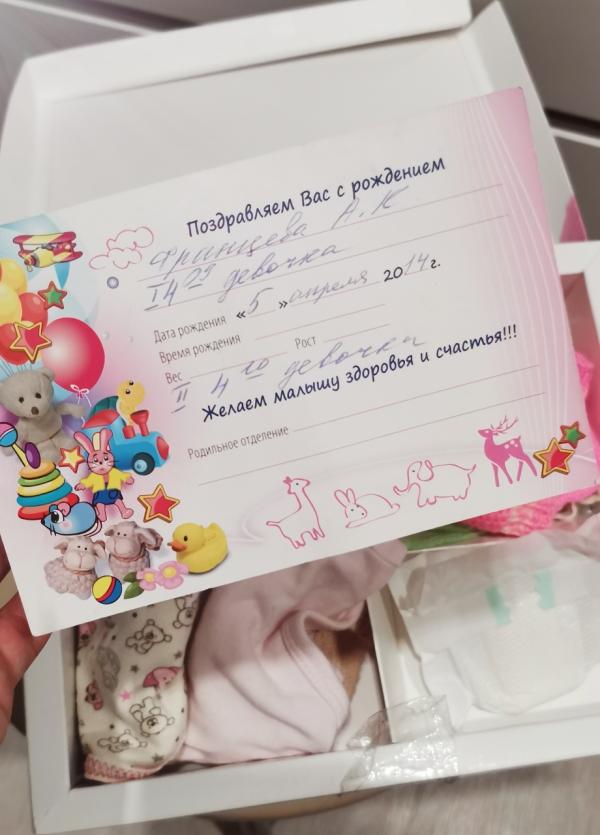 Поздравляем Вас с рождением
Францева А. К
I 4²⁹ девочка
Дата рождения «5» апреля 2014г.
Время рождения
Вес Рост
II 4 ³⁰ девочка
Желаем малышу здоровья и счастья!!!
Родильное отделение